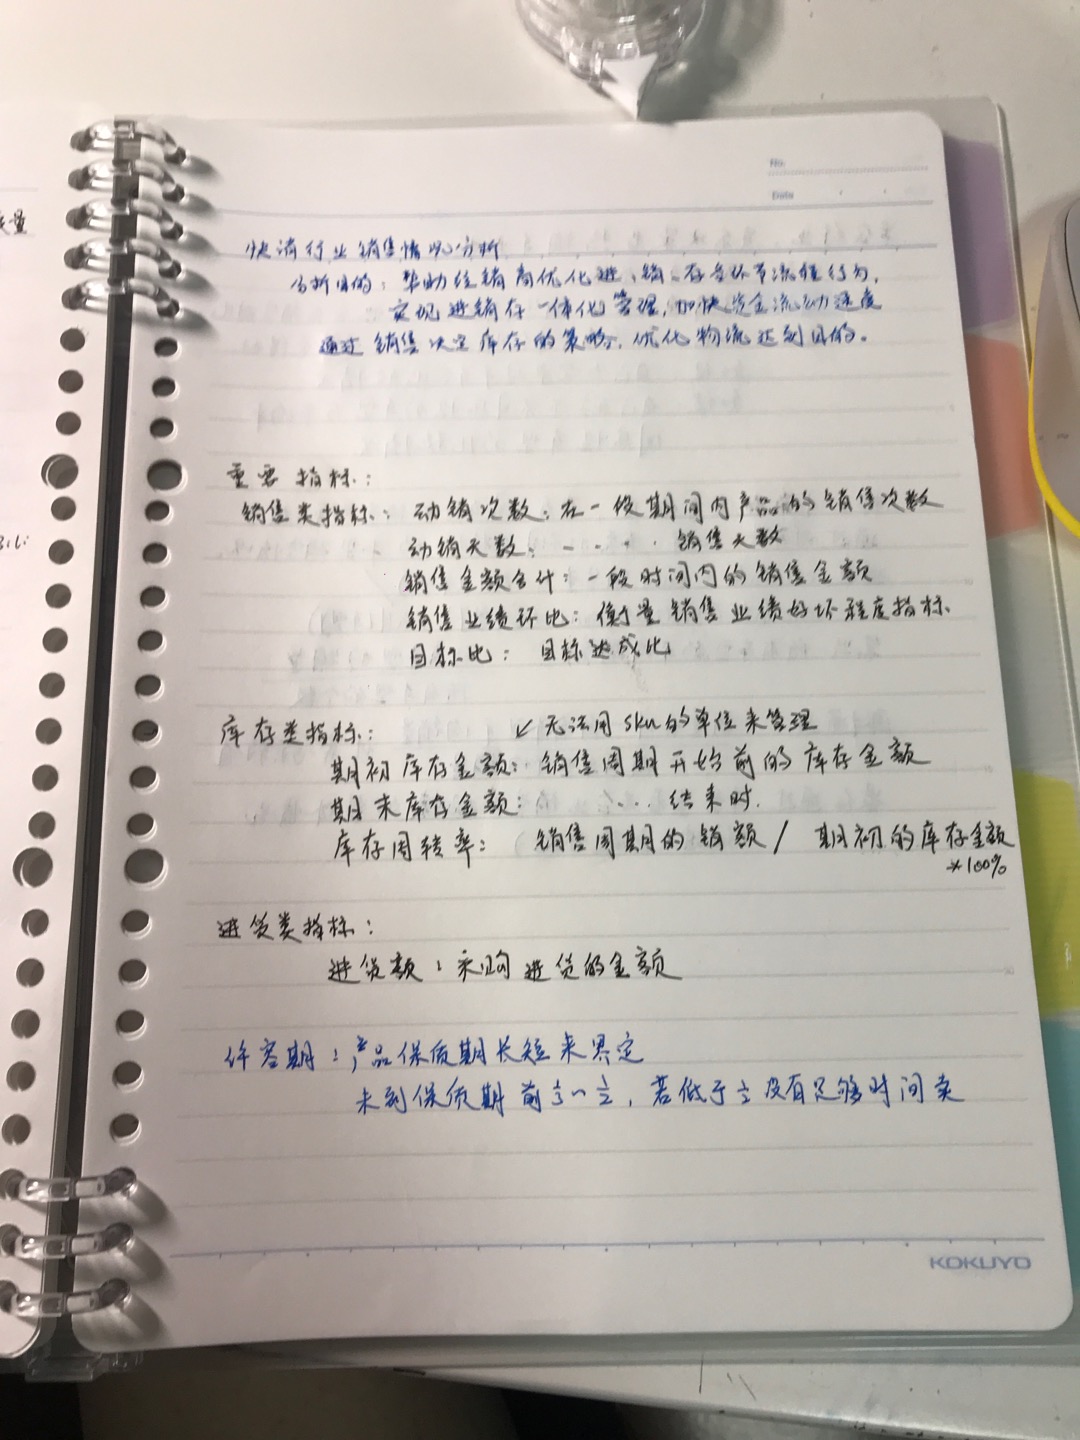 No.
Date
质量
快消行业销售情况分析
分析目的：帮助经销商优化进、销、存各环节流程行为，
实现进销存一体化管理，加快资金流动速度
通过销售决定库存的策略，优化物流达到目的。
重要指标：
销售类指标：动销次数：在一段期间内产品的销售次数
动销天数：- . . . 销售天数
销售金额合计：一段时间内的销售金额
销售业绩环比：衡量销售业绩好坏程度指标
目标比：目标达成比
库存类指标：↙无法用sku的单位来管理
期初库存金额：销售周期开始前的库存金额
期末库存金额：... 结束时.
库存周转率：销售周期的销额 / 期初的库存金额
*100%
进货类指标：
进货额：采购进货的金额
许容期：产品保质期长短来界定
未到保质期前⅓~½，若低于⅓没有足够时间卖
KOKUYO